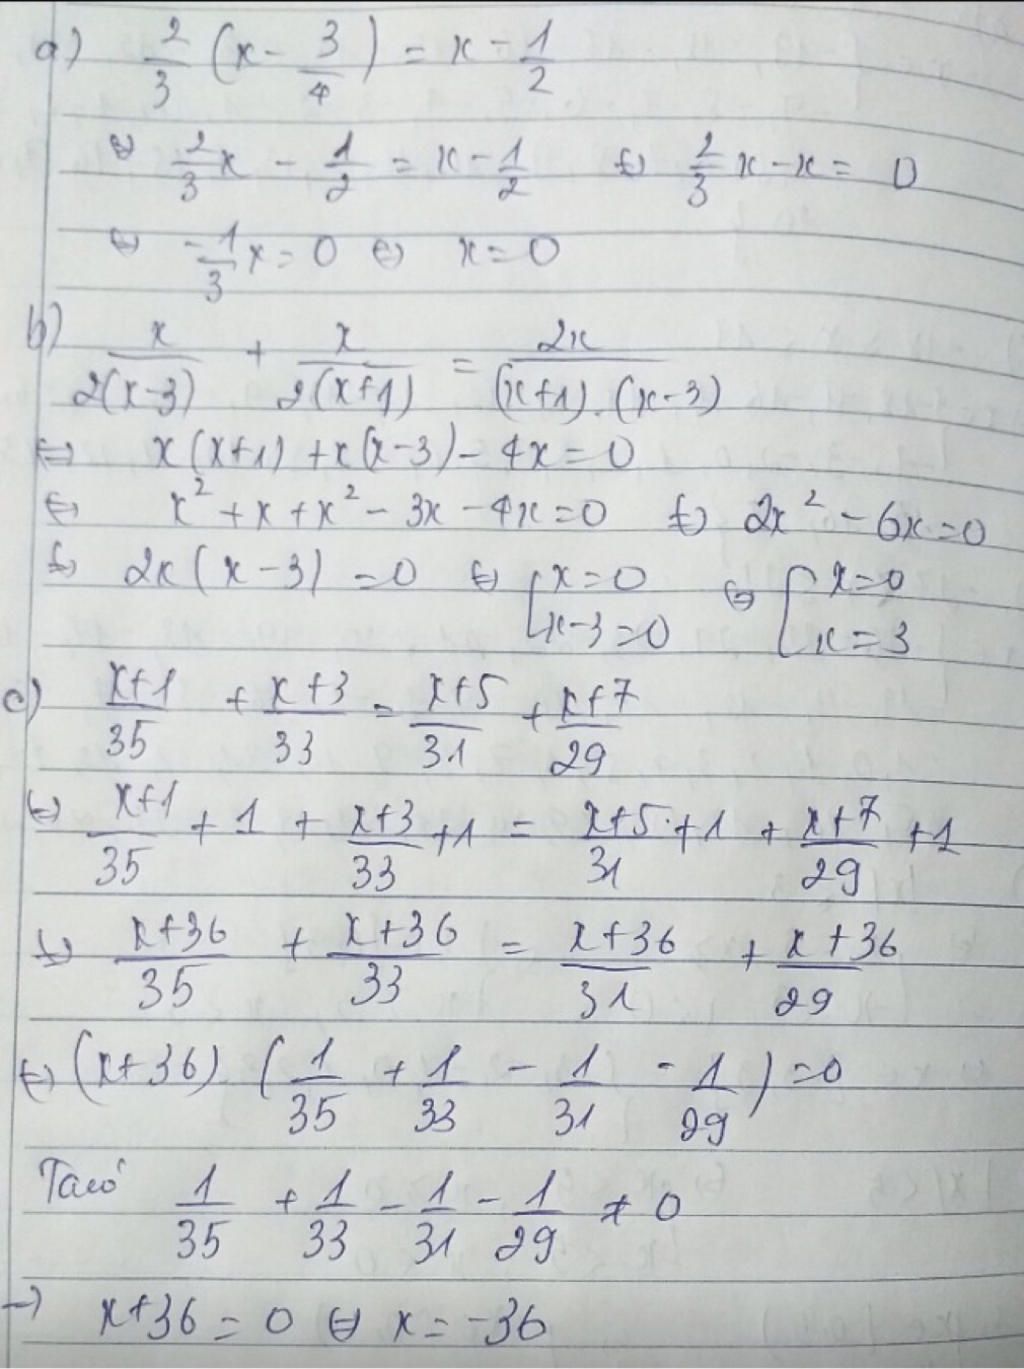 a) 2/3 (x - 3/4) = x - 1/2
⇔ 2/3 x - 1/2 = x - 1/2 ⇔ 2/3 x - x = 0
⇔ -1/3 x = 0 ⇔ x = 0
b) x/2(x-3) + x/2(x+1) = 2x/(x+1).(x-3)
⇔ x(x+1) + x(x-3) - 4x = 0
⇔ x² + x + x² - 3x - 4x = 0 ⇔ 2x² - 6x = 0
⇔ 2x(x-3) = 0 ⇔ [x=0 ⇔ [x=0
x-3=0 x=3
c) x+1/35 + x+3/33 = x+5/31 + x+7/29
⇔ x+1/35 + 1 + x+3/33 + 1 = x+5/31 + 1 + x+7/29 + 1
⇔ x+36/35 + x+36/33 = x+36/31 + x+36/29
⇔ (x+36). (1/35 + 1/33 - 1/31 - 1/29) = 0
Ta có 1/35 + 1/33 - 1/31 - 1/29 ≠ 0
→ x+36 = 0 ⇔ x = -36